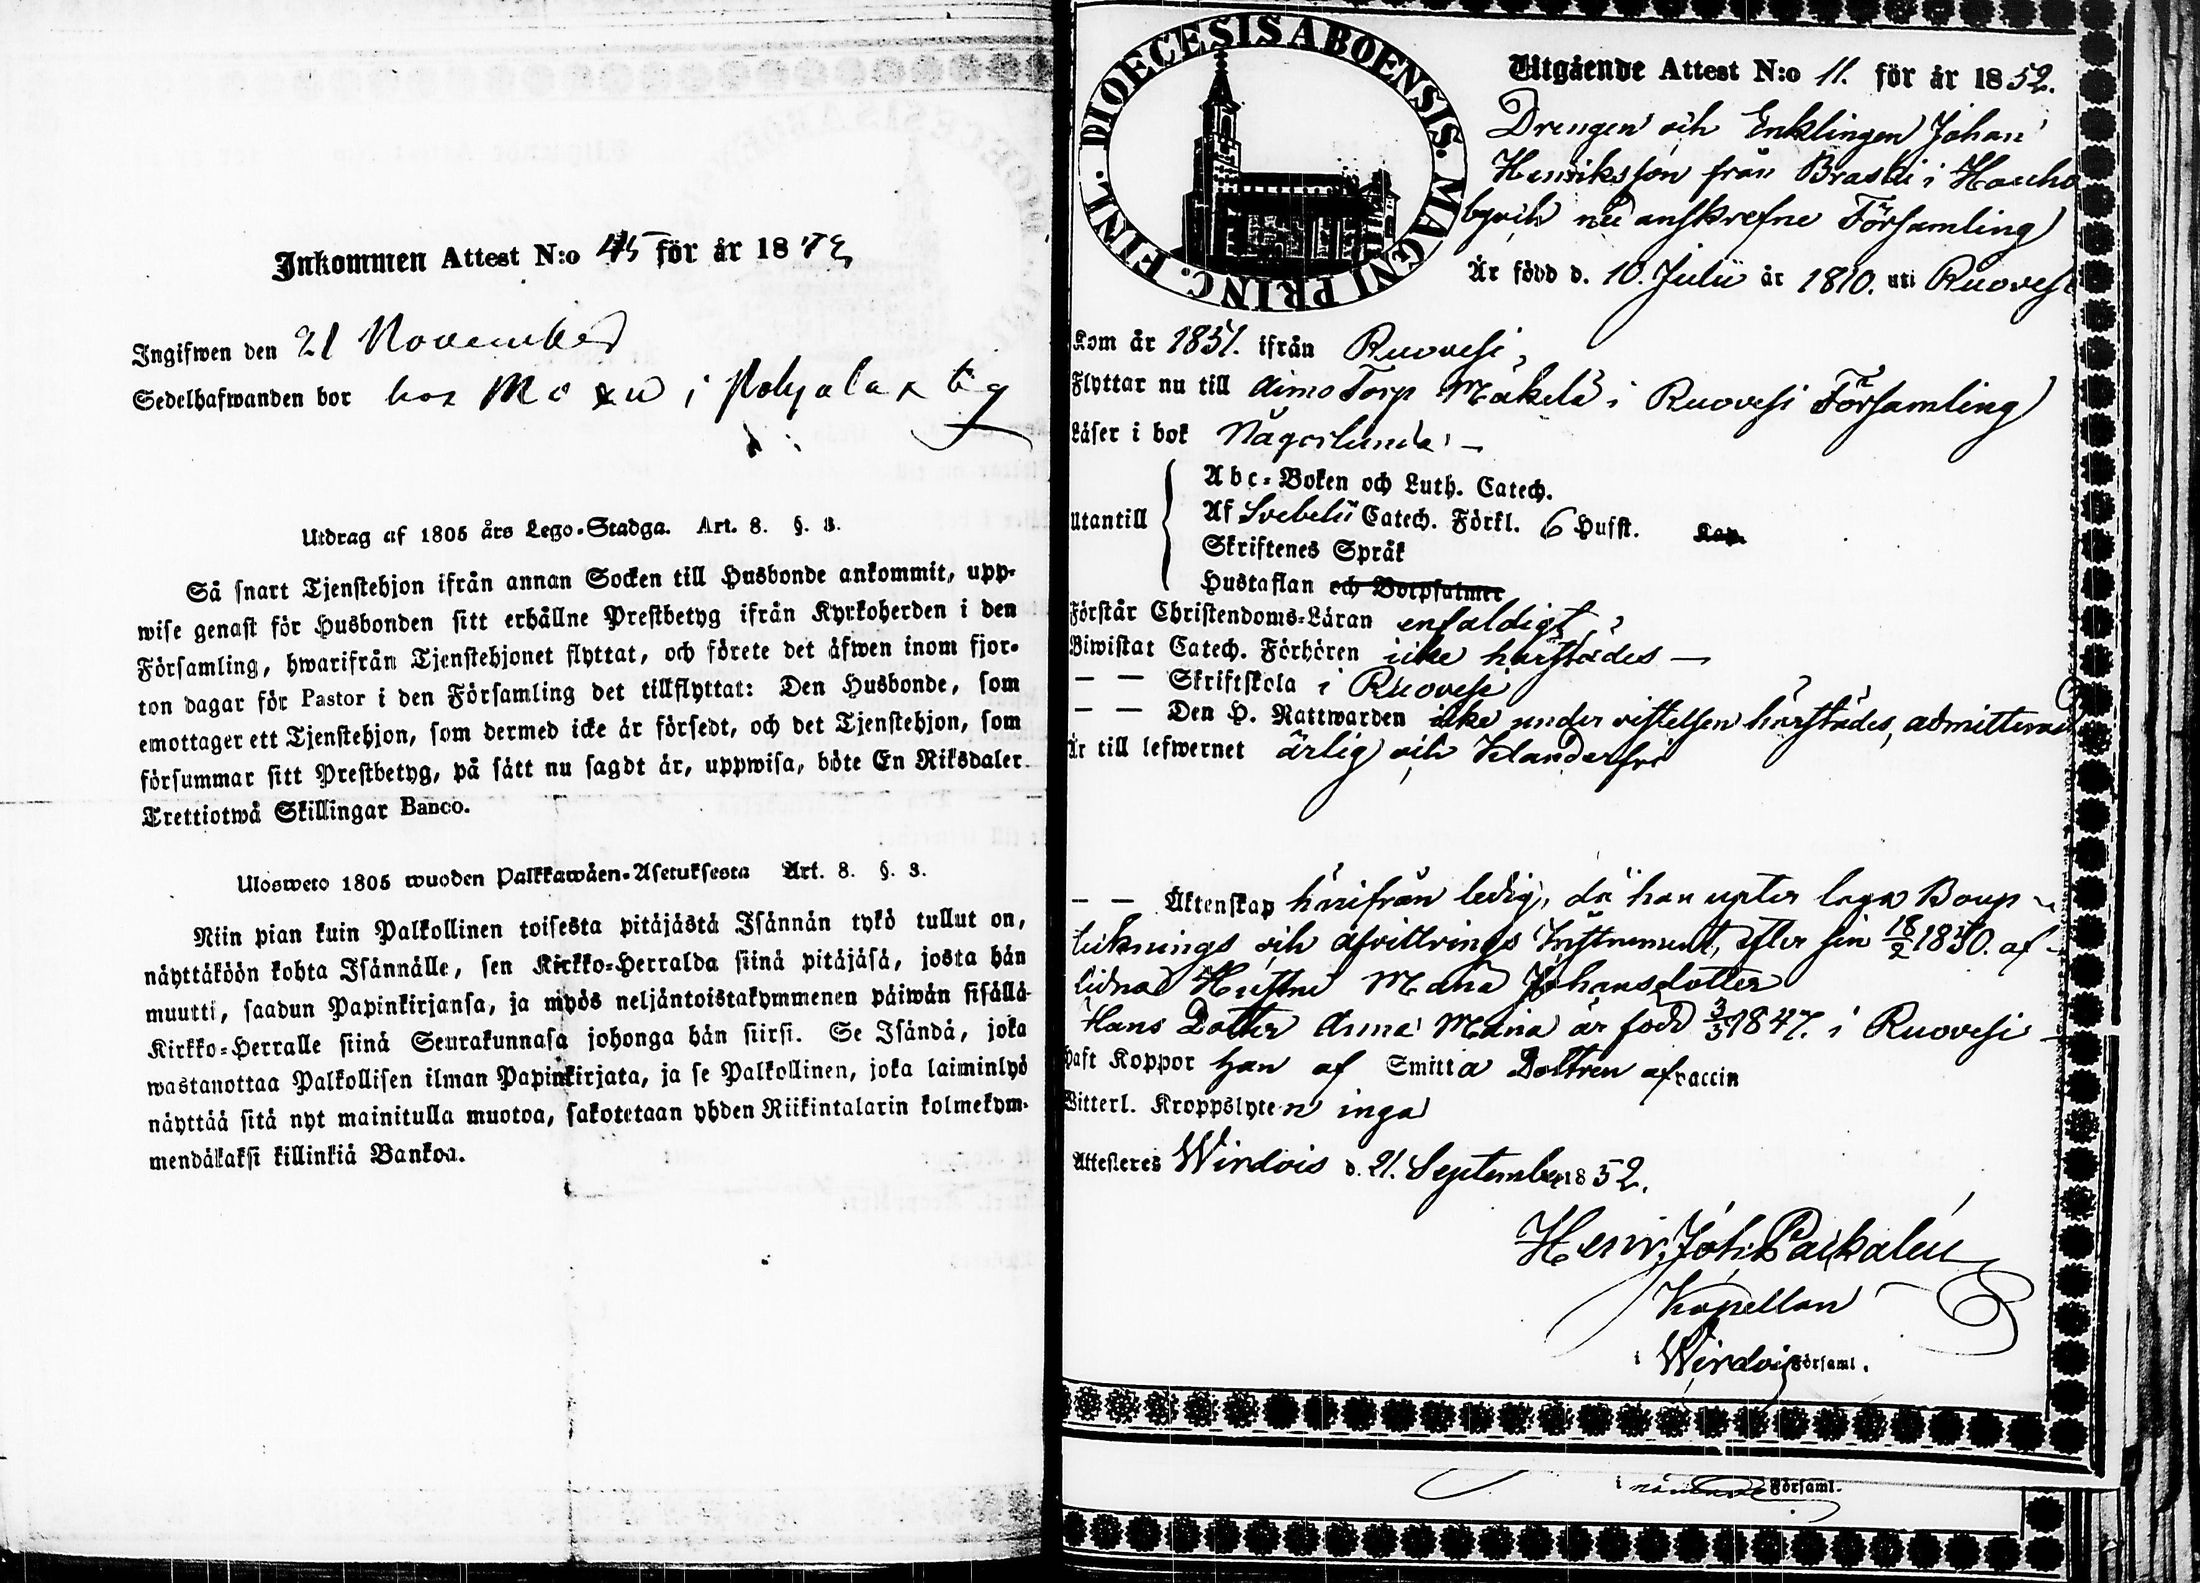 Inkommen Attest N:o 45 för år 18
Ingifwen den 21 November
Sedelhafwanden bor hos i Pohjala
Utdrag af 1805 års Lego-Stadga. Art. 8. §. 3.
Så snart Tjenstehjon ifrån annan Socken till Husbonde ankommit, upp-
wise genast för Husbonden sitt erhållne Prestbetyg ifrån Kyrkoherden i den
Församling, hwarifrån Tjenstehjonet flyttat, och förete det äfwen inom fjor-
ton dagar för Pastor i den Församling det tillflyttat: Den Husbonde, som
emottager ett Tjenstehjon, som dermed icke är försedt, och det Tjenstehjon, som
försummar sitt Prestbetyg, på sätt nu sagdt är, uppwisa, böte En Riksdaler
Trettiotwå Skillingar Banco.
Ulosweto 1805 wuoden Palkkawäen-Asetuksesta Art. 8. §. 3.
Niin pian kuin Palkollinen toisesta pitäjästä Isännän tykö tullut on,
näyttäköön kohta Isännälle, sen Kirkko-Herralda siinä pitäjäsä, josta hän
muutti, saadun Papinkirjansa, ja myös neljäntoistakymmenen päiwän sisällä
Kirkko-Herralle siinä Seurakunnasa johonga hän siirsi. Se Isändä, joka
wastanottaa Palkollisen ilman Papinkirjata, ja se Palkollinen, joka laiminlyö
näyttää sitä nyt mainitulla muotoa, sakotetaan yhden Riikintalarin kolmekym-
mendäkaksi killinkiä Bankoa.
DIOECESIS ABOENSIS. MAGNI PRINC. FINL.
Utgående Attest N:o 11. för år 1852.
Drengen och Enklingen Johan
Henriksson från Braski i Hauho
by och nedanskrefne Församling
Är född d. 10. Julii år 1810. uti Ruovesi
Kom år 1851. ifrån Ruovesi,
Flyttar nu till Aimo Torp Mäkelä i Ruovesi Församling
Läser i bok Någorlunda. —
Utantill
Abc-Boken och Luth. Catech.
Af Svebelii Catech. Förkl. 6 Hufst. Kap.
Skriftenes Språk
Hustaflan och Botpsalmer
Förstår Christendoms-Läran enfaldigt,
Biwistat Catech. Förhören icke härstädes —
— — Skriftskola i Ruovesi
— — Den H. Nattwarden icke under vistelsen härstädes, admitterad
Är till lefwernet ärlig och klanderfri
— — Äktenskap härifrån ledig, då han upter laga Boup-
teknings och afvittrings Instrument, efter sin 18/2 1850. af-
lidna Hustru Maria Johansdotter
Hans Dotter Anna Maria är född 3/3 1847. i Ruovesi
Haft Koppor han af Smitta Dottren af vaccin
Witterl. Kroppslyten inga
Attesteres Wirdois d. 21. September 1852.
Henr. Joh. Paikalén
Kapellan
i Wirdois Församl.
i Församl.